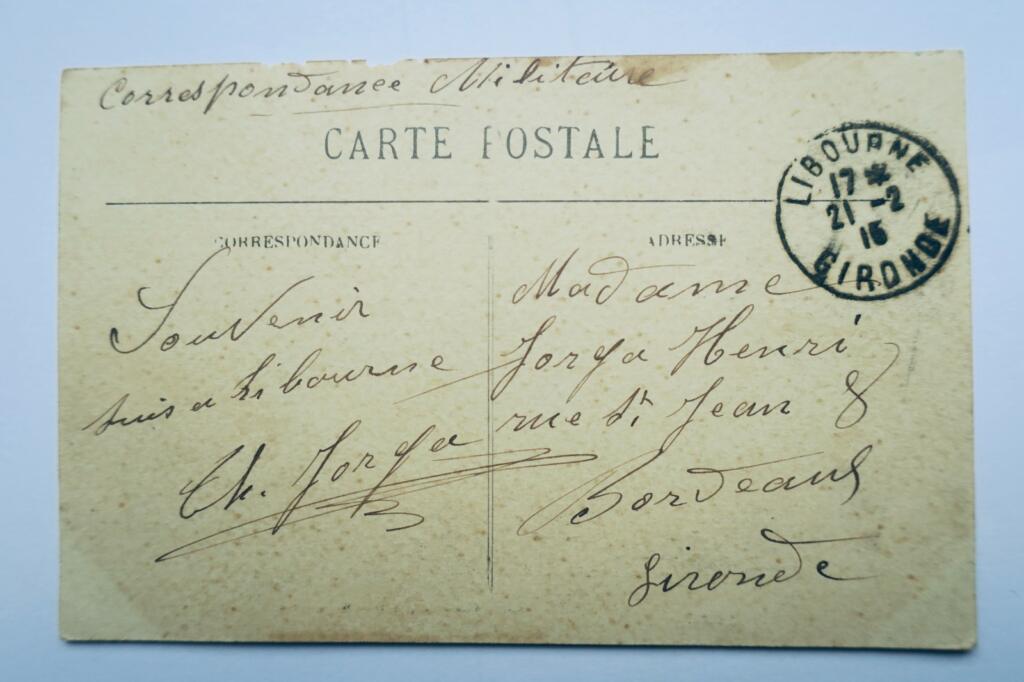 Correspondance Militaire
CARTE POSTALE
LIBOURNE
17 *
21 -2
15
GIRONDE
CORRESPONDANCE
Souvenir
suis a Libourne
Ch. Jorga
ADRESSE
Madame
Jorga Henri
rue St Jean 8
Bordeaux
Gironde